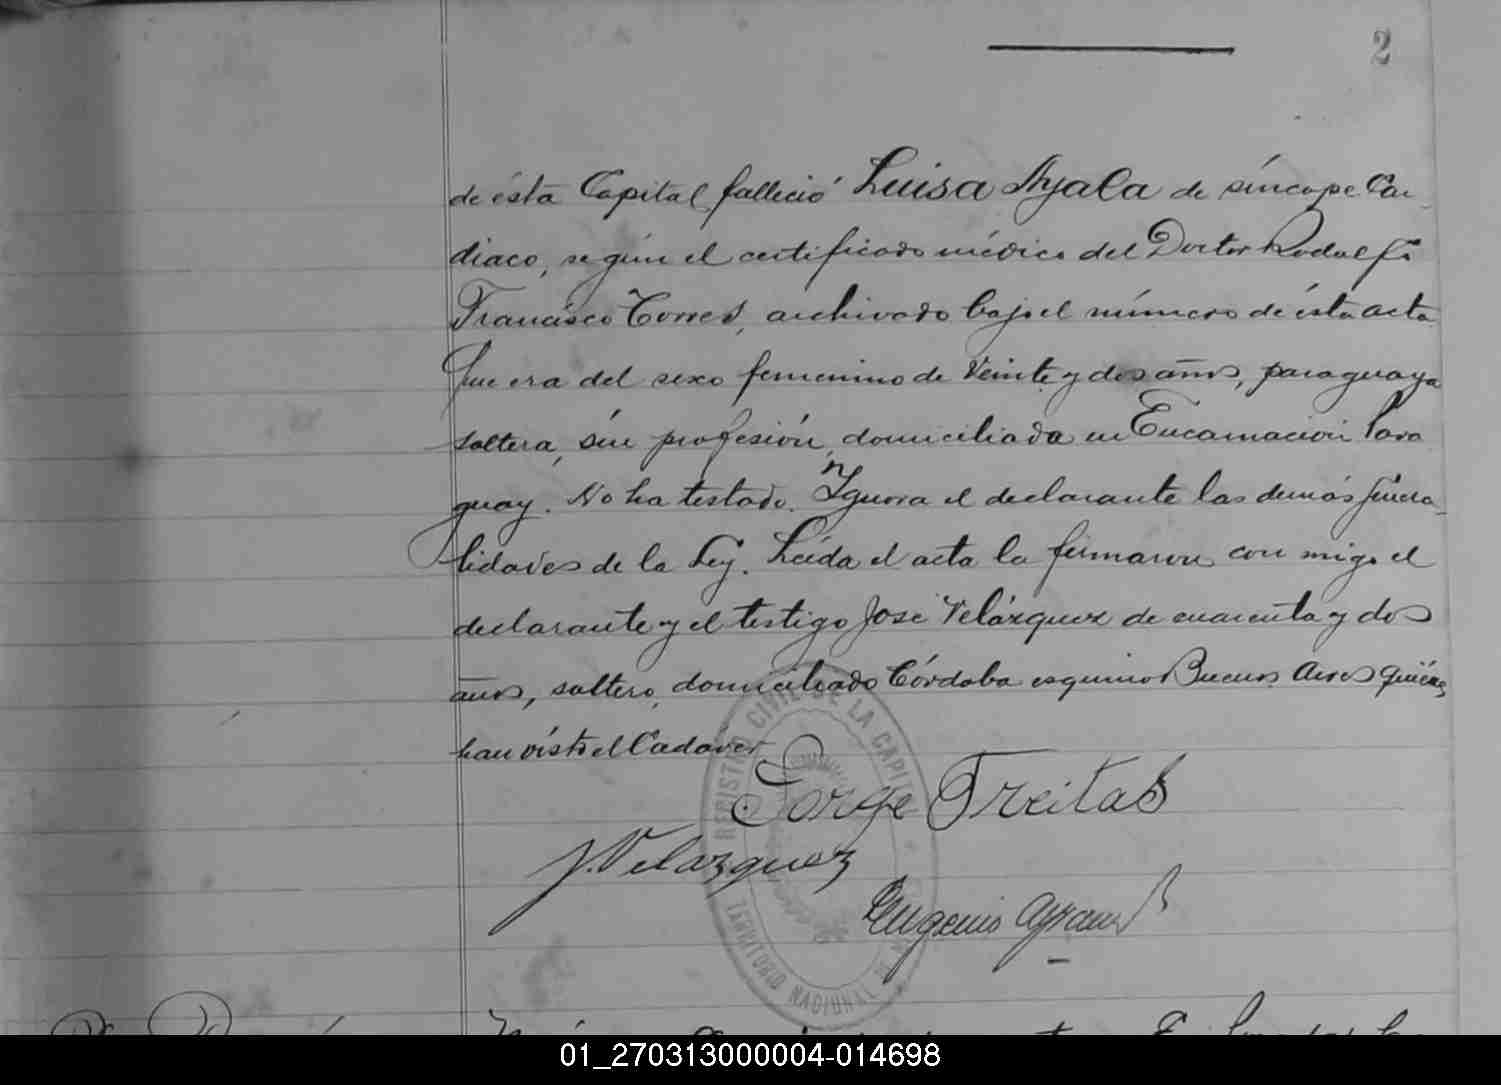 2
de ésta Capital falleció Luisa Ayala de síncope Car
diaco, según el certificado médico del Doctor Rodolfo
Francisco Torres, archivado bajo el número de ésta acta
Que era del sexo femenino de veinte y dos años, paraguaya
soltera, sin profesión, domiciliada en Encarnación Para
guay. No ha testado. Ygnora el declarante las demás genera
lidades de la Ley. Leída el acta la firmaron con migo el
declarante y el testigo José Velázquez de cuarenta y dos
años, soltero, domiciliado Córdoba esquina Buenos Aires quiénes
han visto el Cadáver
Jorge Freitas
J. Velazquez
Eugenio
REGISTRO CIVIL DE LA CAPITAL
TERRITORIO NACIONAL DE
01_270313000004-014698